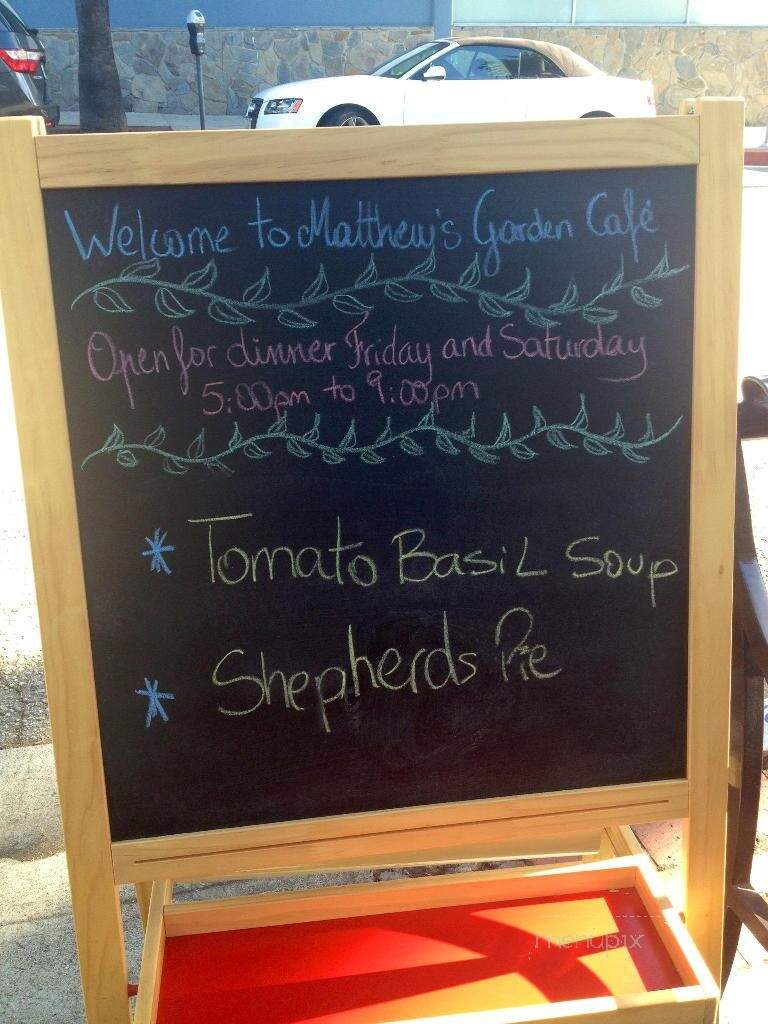 Welcome to Matthew's Garden Café
Open for dinner Friday and Saturday
5:00pm to 9:00pm
* Tomato Basil Soup
* Shepherds Pie
menupix